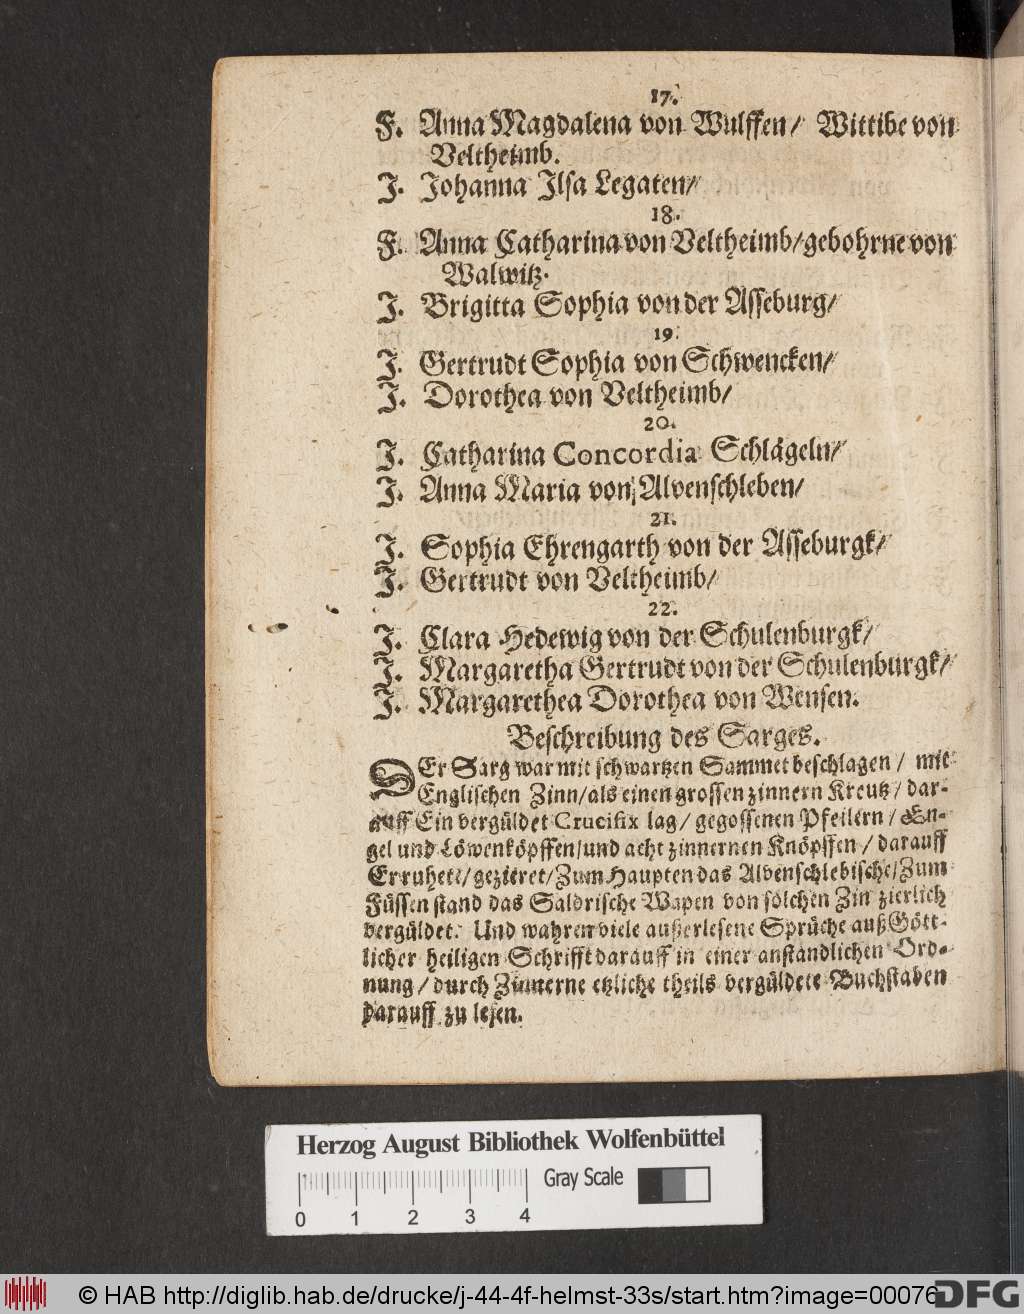 17.
F. Anna Magdalena von Wulffen/ Wittibe von
Veltheimb.
J. Johanna Ilsa Legaten/
18.
F. Anna Catharina von Veltheimb/gebohrne von
Walwitz.
J. Brigitta Sophia von der Asseburg/
19.
J. Gertrudt Sophia von Schwencken/
J. Dorothea von Veltheimb/
20.
J. Catharina Concordia Schlägeln/
J. Anna Maria von Alvenschleben/
21.
J. Sophia Ehrengarth von der Asseburgk/
J. Gertrudt von Veltheimb/
22.
J. Clara Hedewig von der Schulenburgk/
J. Margaretha Gertrudt von der Schulenburgk/
J. Margarethea Dorothea von Wensen.
Beschreibung des Sarges.
DEr Sarg war mit schwartzen Sammet beschlagen / mit
Englischen Zinn/als einen grossen zinnern Kreutz/ dar-
auff Ein vergüldet Crucifix lag/ gegossenen Pfeilern / En-
gel und Löwenköpffen/und acht zinnernen Knöpffen / darauff
Er ruhete/gezieret/Zum Haupten das Alvenschlebische/Zum
Füssen stand das Saldrische Wapen von solchen Zin zierlich
vergüldet. Und wahren viele außerlesene Sprüche auß Gött-
licher heiligen Schrifft darauff in einer anständlichen Ord-
nung/ durch Zinnerne etzliche theils vergüldete Buchstaben
darauff zu lesen.
Herzog August Bibliothek Wolfenbüttel
Gray Scale
0 1 2 3 4
© HAB http://diglib.hab.de/drucke/j-44-4f-helmst-33s/start.htm?image=00076
DFG